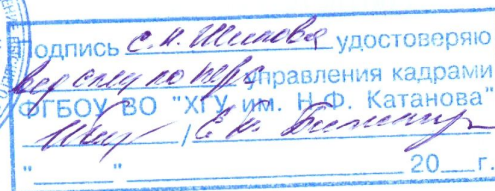 Подпись С.Н. Шилова удостоверяю
вед спец по перс управления кадрами
ФГБОУ ВО "ХГУ им. Н.Ф. Катанова"
/
"___"___ 20___г.